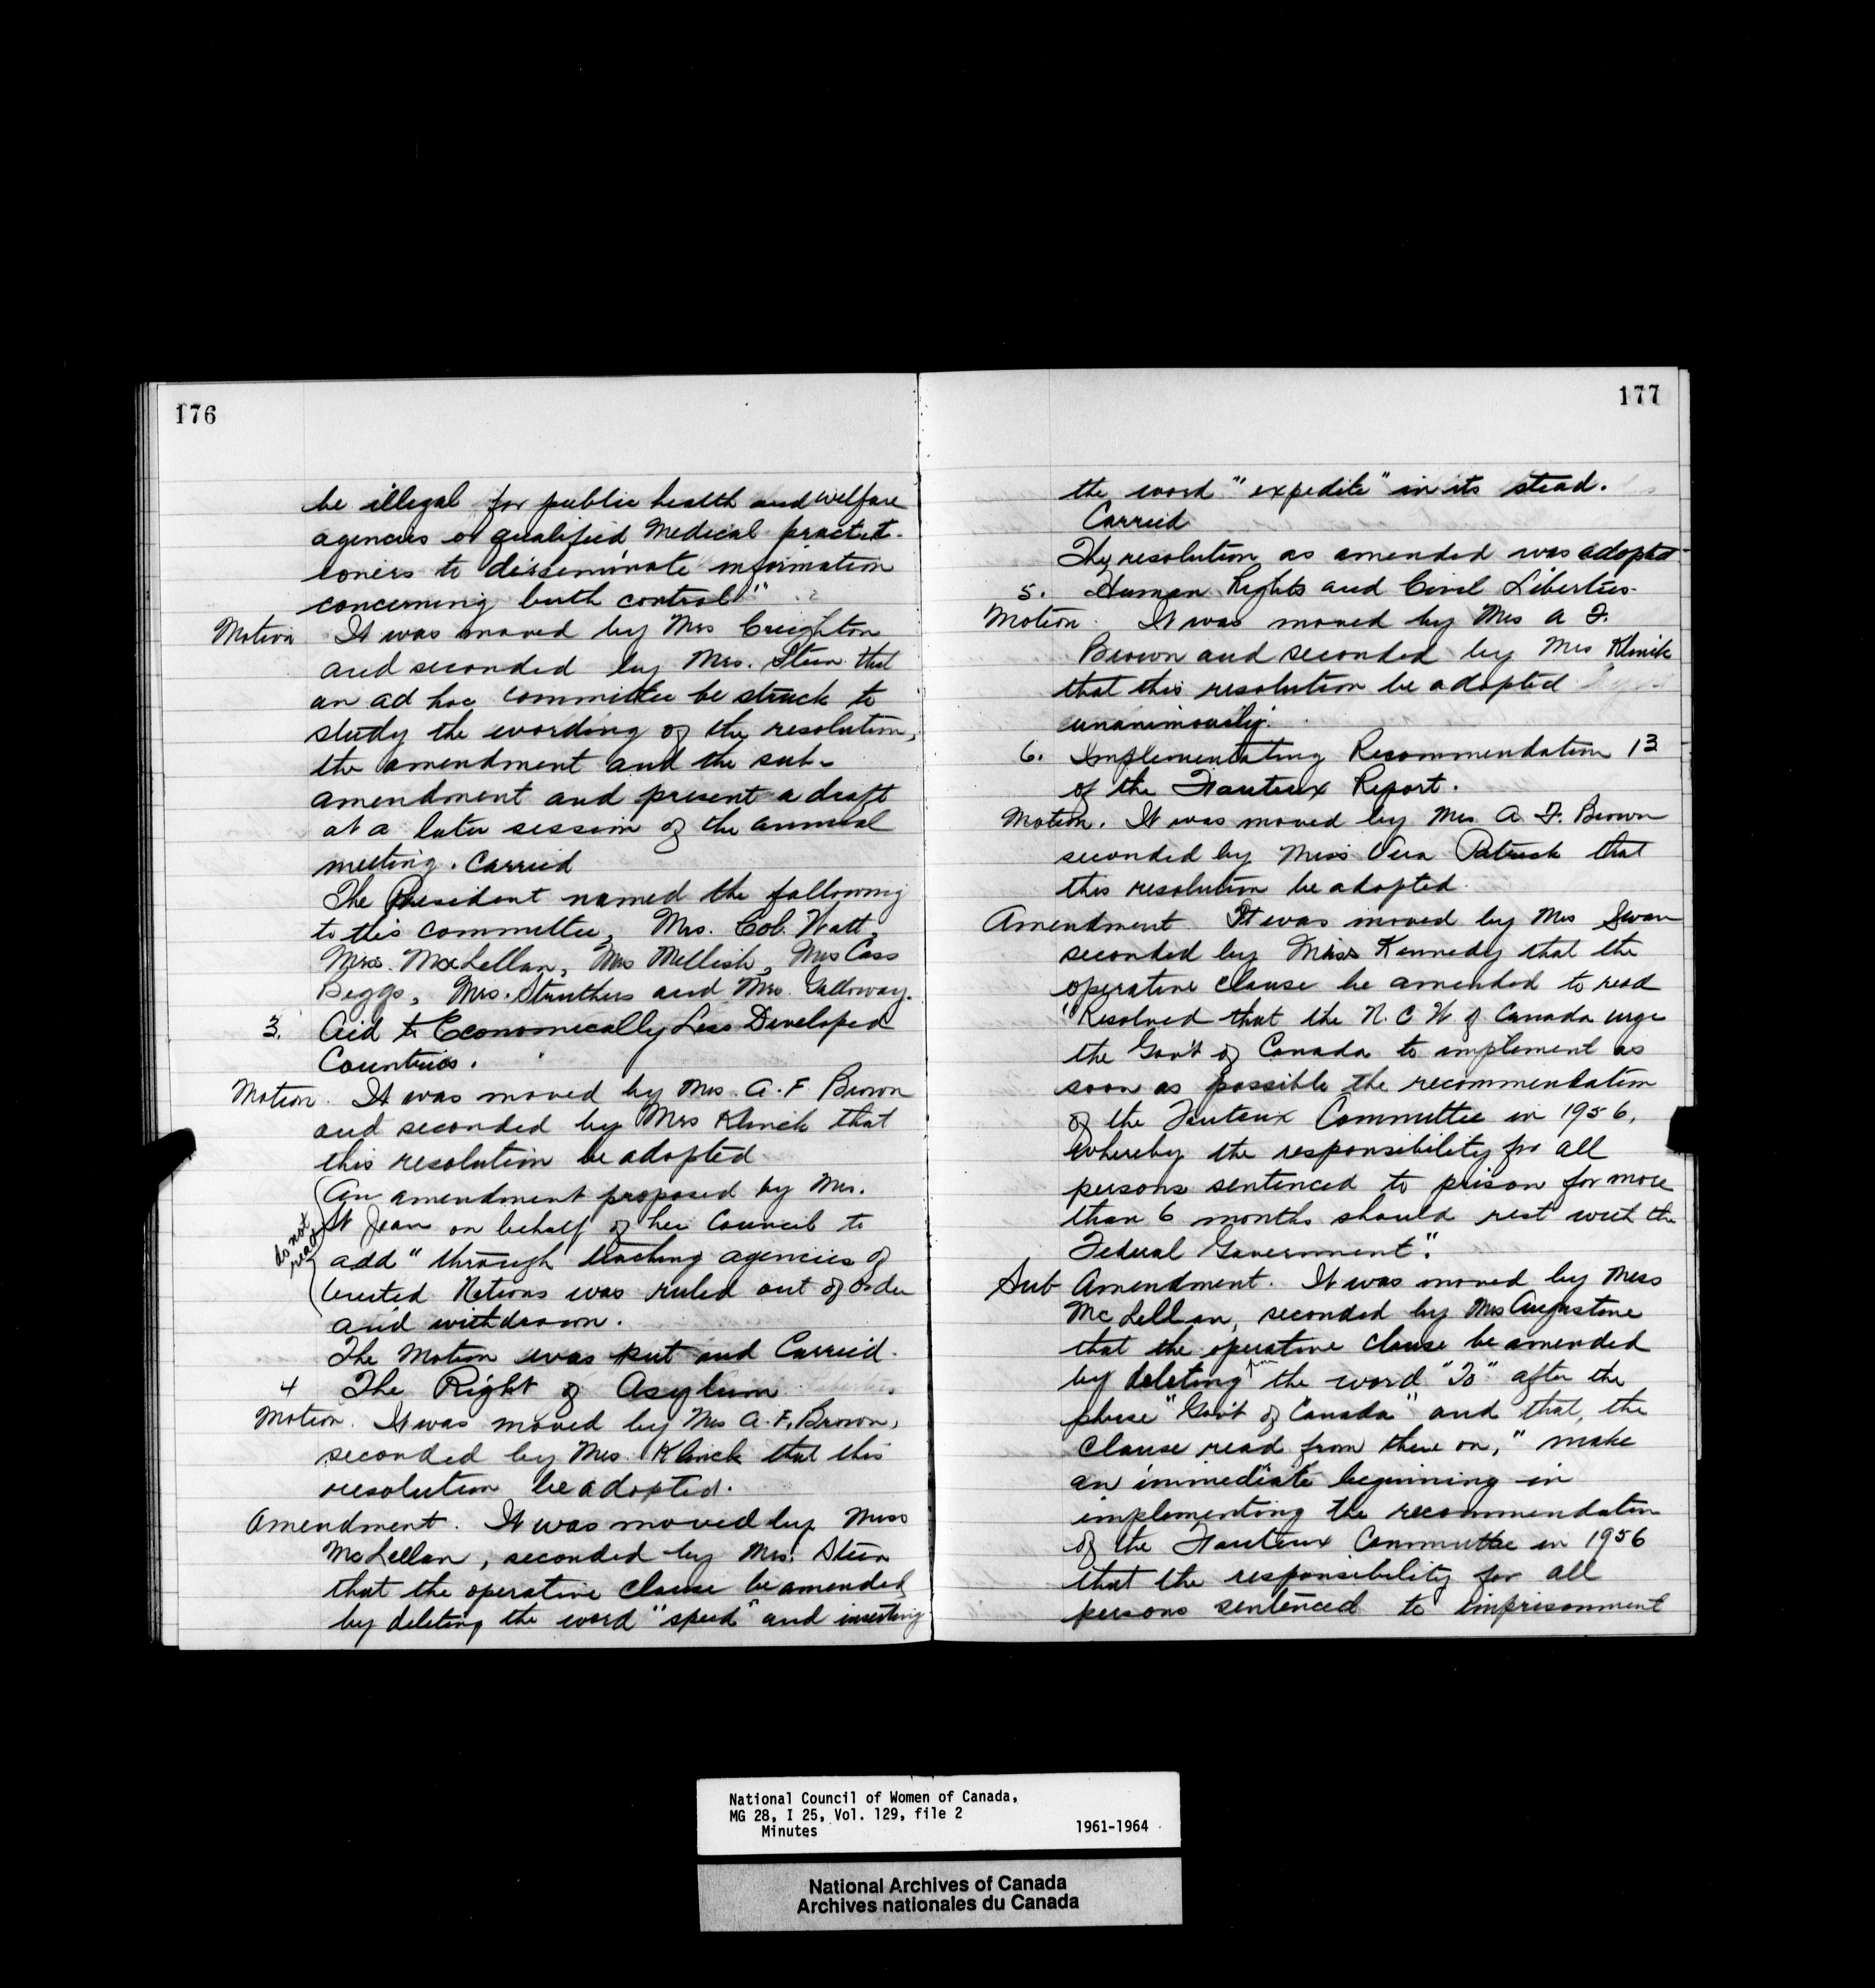 176
be illegal for public health and welfare
agencies or qualified Medical practit-
ioners to disseminate information
concerning birth control"
Motion It was moved by Mrs Creighton
and seconded by Mrs. Steen that
an ad hoc committee be struck to
study the wording of the resolution,
the amendment and the sub-
amendment and present a draft
at a later session of the annual
meeting. Carried
The President named the following
to this committee, Mrs. Col. Watt,
Miss. McLellan, Mrs Mellish, Mrs Cass
Beggs, Mrs. Struthers and Mrs. Galloway.
3. Aid to Economically Less Developed
Countries.
Motion. It was moved by Mrs. A. F. Brown
and seconded by Mrs Klinck that
this resolution be adopted
An amendment proposed by Mrs.
St Jean on behalf of her Council to
do not
read
add "through teaching agencies of
United Nations was ruled out of order
and withdrawn.
The Motion was put and Carried.
4 The Right of Asylum
Motion. It was moved by Mrs A. F. Brown,
seconded by Mrs. Klinck that this
resolution be adopted.
Amendment. It was moved by Miss
McLellan, seconded by Mrs. Steen
that the operative clause be amended
by deleting the word "speed" and inserting
177
the word "expedite" in its stead.
Carried
The resolution as amended was adopted
5. Human Rights and Civil Liberties.
Motion. It was moved by Mrs A F.
Brown and seconded by Mrs Klinck
that this resolution be adopted
unanimously.
6. Implementating Recommendation 13
of the Fauteux Report.
Motion. It was moved by Mrs A F. Brown
seconded by Miss Vera Patrick that
this resolution be adopted.
Amendment It was moved by Mrs Swan
seconded by Miss Kennedy that the
operative clause be amended to read
"Resolved that the N. C W. of Canada urge
the Gov't of Canada to implement as
soon as possible the recommendation
of the Fauteux Committee in 1956,
whereby the responsibility for all
persons sentenced to prison for more
than 6 months should rest with the
Federal Government".
Sub Amendment. It was moved by Miss
McLellan, seconded by Mrs Augustine
that the operative clause be amended
by deleting the word "To" after the
phrse "Gov't of Canada" and that, the
clause read from there on, "make
an immediate beginning in
implementing the recommendation
of the Fauteux Committee in 1956
that the responsibility for all
persons sentenced to imprisonment
National Council of Women of Canada,
MG 28, I 25, Vol. 129, file 2
Minutes 1961-1964
National Archives of Canada
Archives nationales du Canada